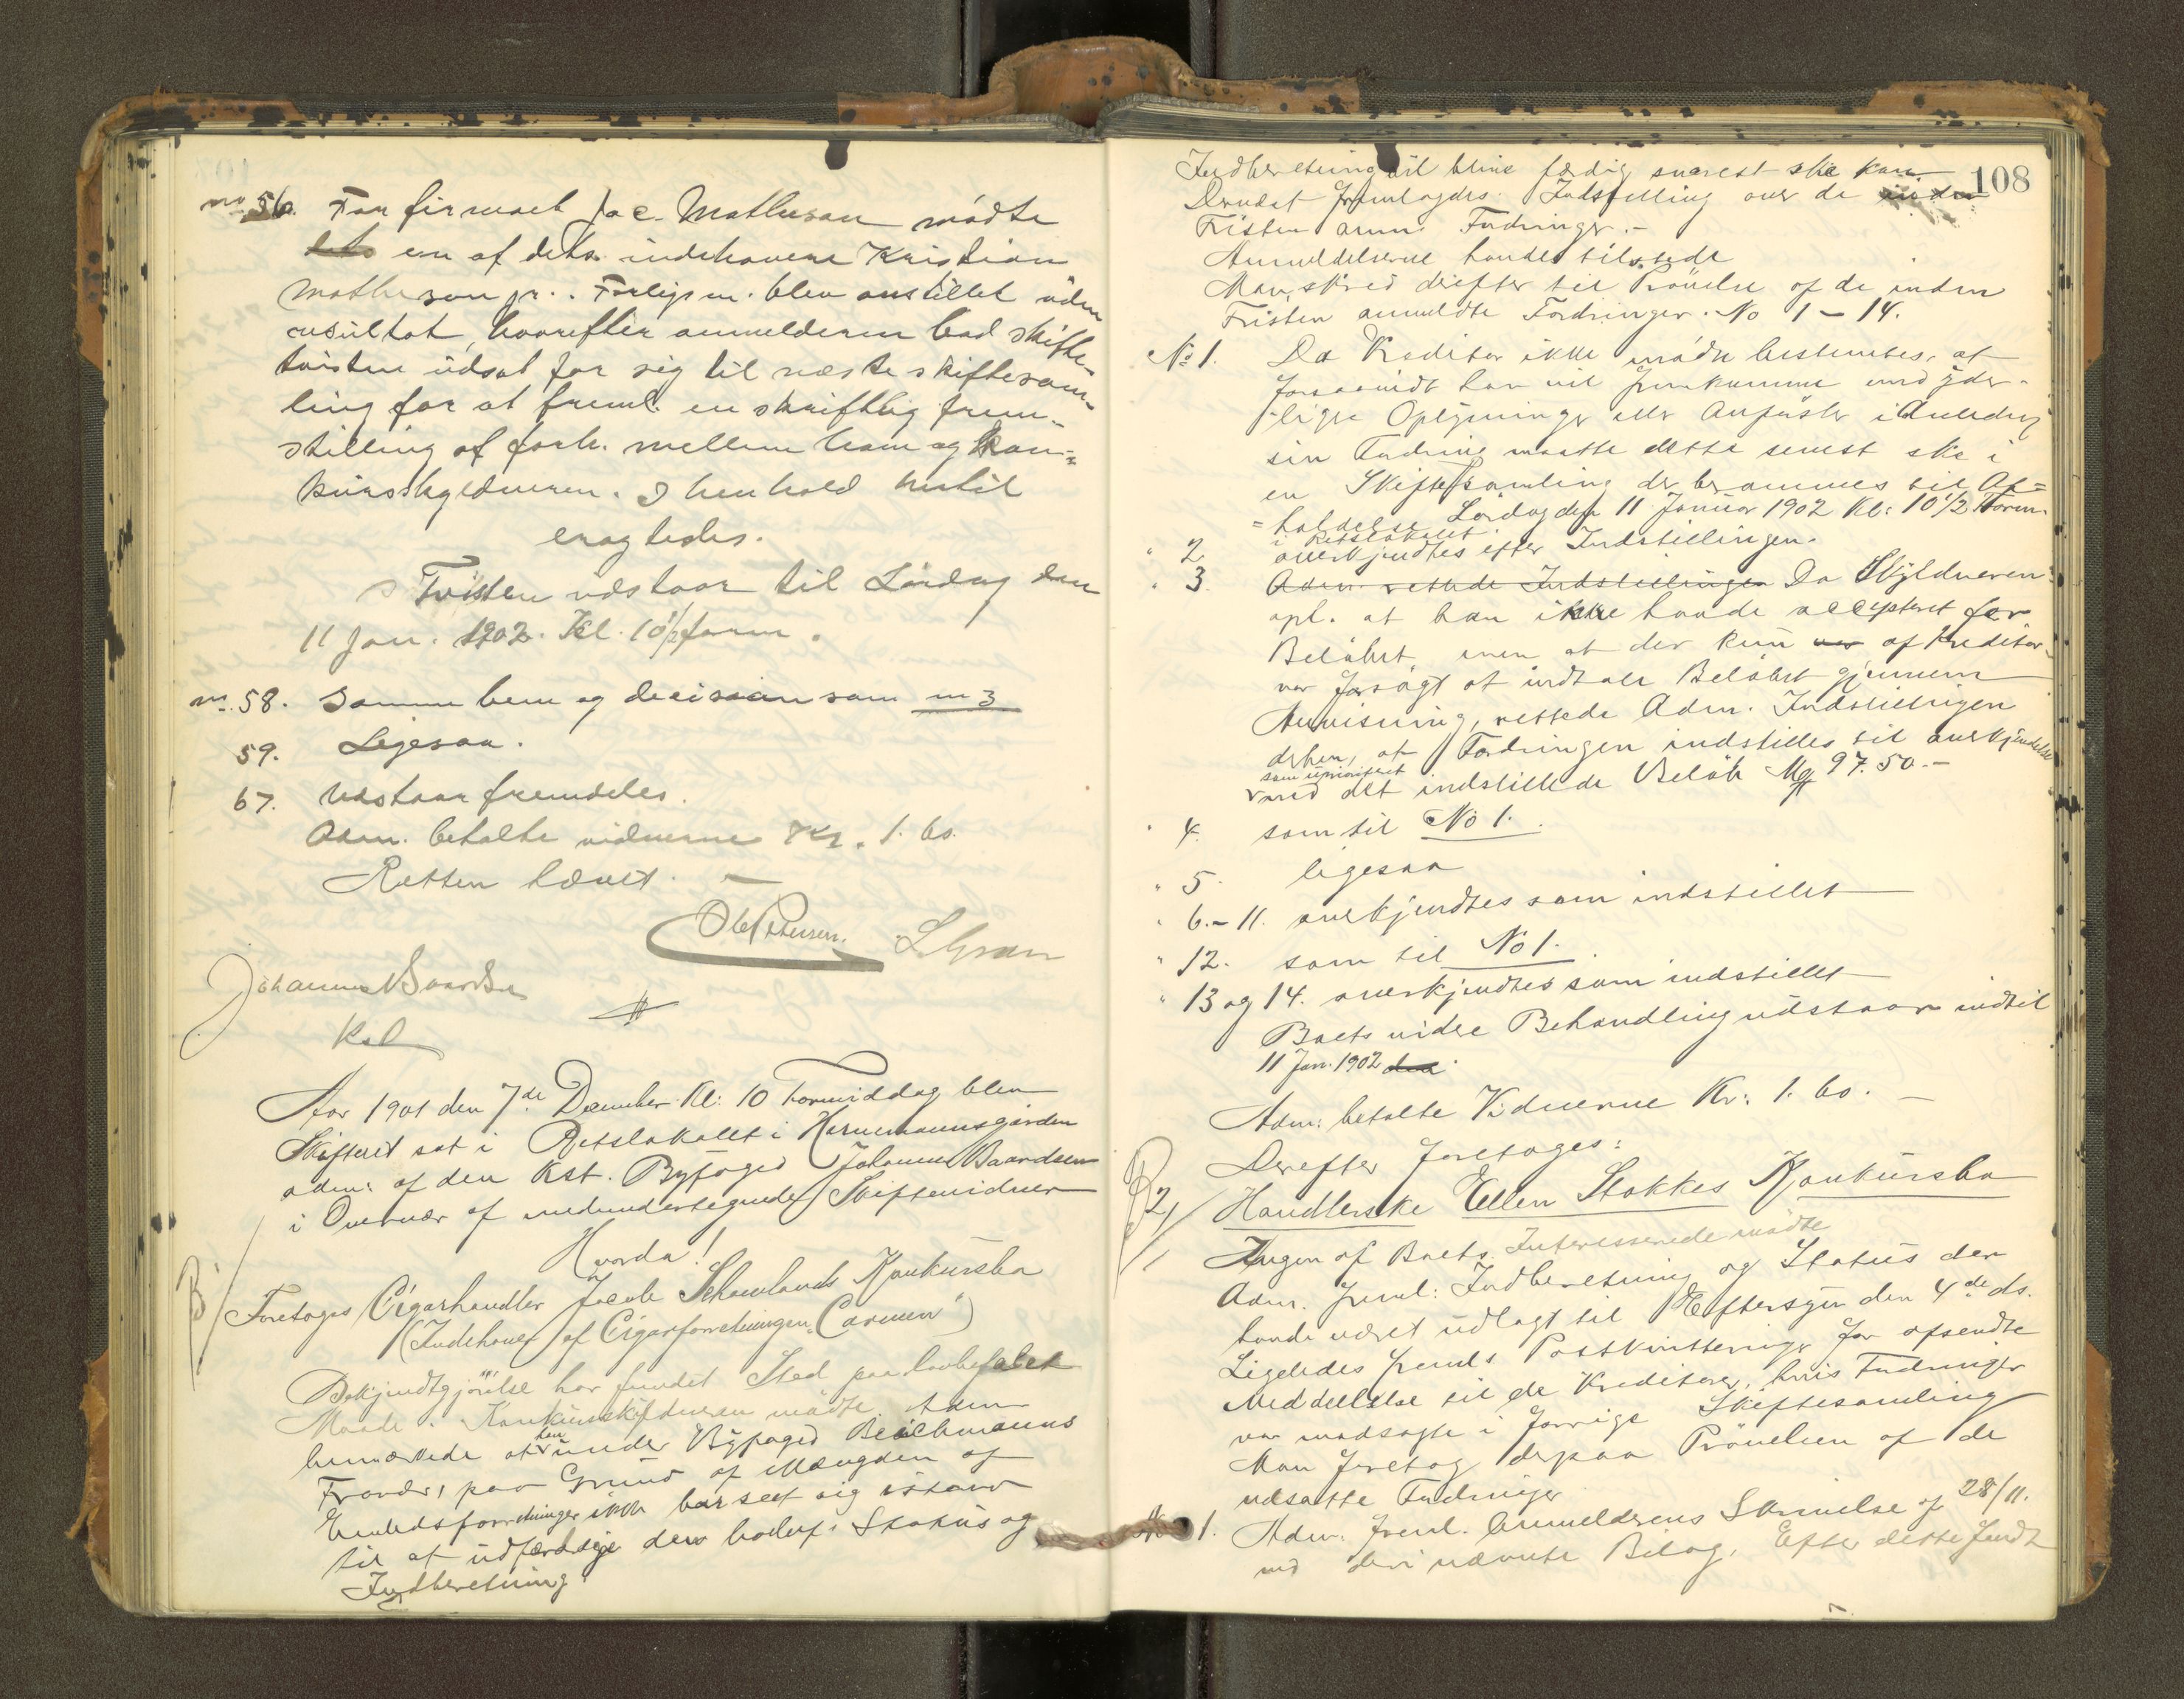 no 56. For firmaet Jac. Mathesan mödte
en af dets indehavere Kristian
Mathesan jr. Forligsm. blev anstillet uden
resultat, hvorefter anmelderen bad skifte-
tvisten udsat for sig til næste skiftesam-
ling for at freml. en skriftlig frem-
stilling af forh. mellem ham og kon-
kursskyldneren. I henhold hertil
eragtedes.
Tvisten udstaar til Lördag den
11 Jan. 1902. Kl. 10 1/2 form.
no. 58. Samme bem og decision som no 3
59. Ligesaa.
67. Udstaar fremdeles.
Adm. betalte vidnerne Kr. 1.60.
Retten hævet. —
Ole Petersen. L Gran
Johannes Baardsen
Kst
Aar 1901 den 7de December Kl: 10 Formiddag blev
Skifteret sat i Retslokalet i Hornemannsgården
adm: af den Kst. Byfoged Johannes Baardsen
i Overvær af medundertegnede Skiftevidner
Hvorda!
B 1/ Foretoges Cigarhandler Jacob Schawlands Konkursbo
(Indehaver af Cigarforretningen "Carmen")
Bekjendtgjörelse har fundet Sted paa lovbefalet
Maade. Konkursskyldneren mödte. Adm
bemærkede at han under Byfoged Beichmanns
Fravær, paa Grund af Mængden af
Embedsforretninger ikke har seet sig istand
til at udfærdige den belef. Status og
Indberetning
108
Indberetning vil blive færdig snarest ske kan.
Derudat fremlagdes Indstilling over de inden
Fristen anm. Fordringer. -
Anmeldelserne havdes tilstede
Man skred derefter til Prövelse af de inden
Fristen anmeldte Fordringer. No 1 - 14.
No 1. Da Kreditor ikke mödte bestemtes, at
forsaavidt han vil fremkomme med yder-
ligere Oplysninger eller Anförsler i Anledng
sin Fordring maatte dette senest ske i
en Skiftesamling der berammes til Af=
=holdelse Lördag den 11 Januar 1902 Kl: 10 1/2 Form.
i Retslokalet
" 2 anerkjendtes efter Indstillingen.
" 3. Adm. rettede Indstillingen Da Skyldneren
opl. at han ikke havde accepteret for
Belöbet, men at der kun var af Kreditor
var forsögt at indtale Belöbet gjennem
Anvisning, rettede Adm. Indstillingen
derhen, at Fordringen indstilles til anerkjendelse
som uprioriteret
med det indstillede Belöb Mg 97.50.-
" 4. som til No 1.
" 5. ligesaa
" 6.- 11. anerkjendtes som indstillet
" 12. som til No 1.
" 13 og 14. anerkjendtes som indstillet
Boets videre Behandling udstaar indtil
11 Jan. 1902 den
Adm: betalte Vidnerne Kr: 1.60. —
Derefter foretoges:
B 2/ Handlerske Ellen Stokkes Konkursbo
Ingen af Boets Interesserede mödte
Adm. freml: Indberetning og Status der
havde været udlagt til Eftersyn den 4de ds.
Ligeledes freml: Postkvitteringer for afsendte
Meddelelse til de Kreditorer, hvis Fordringer
var modsagte i forrige Skiftesamling
Man foretog derpaa Prövelsen af de
udsatte Fordringer
No 1. Adm. freml. Anmelderens Skrivelse af 28/11.
med deri nævnte Bilag. Efter dette fandt